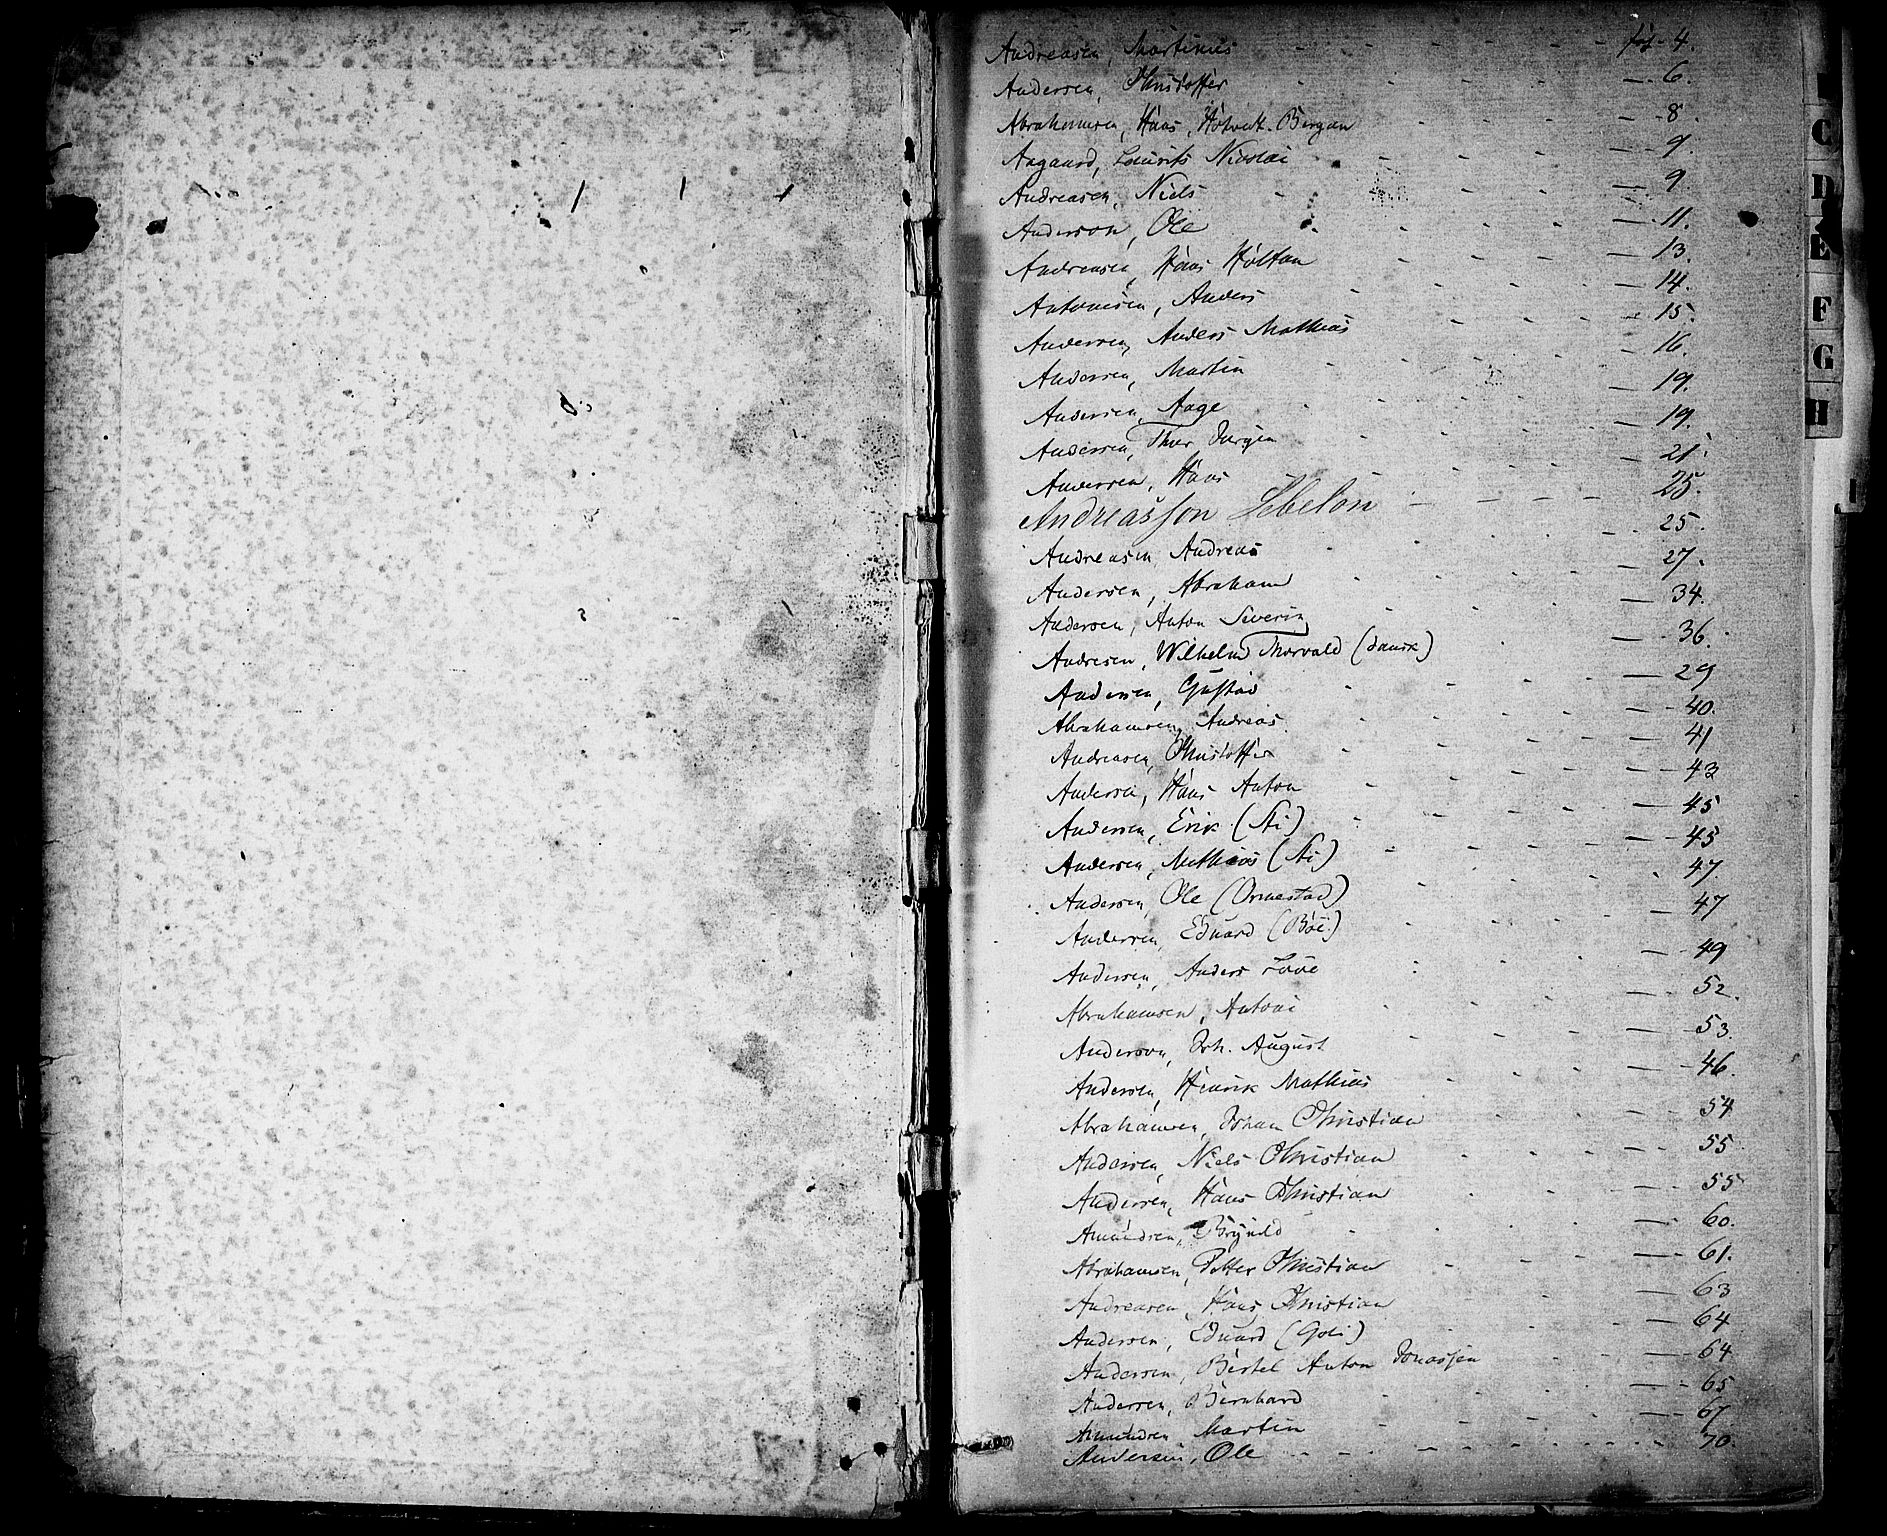 Andreasen, Martinus - - - - 4.
Andersen, Christoffer - - - 6.
Abrahamsen, Hans, Hotvedt. Bergan - - - 8.
Aagaard, Laurits Nicolai - - - 9.
Andreasen, Niels - - - 9.
Anderson, Ole - - - 11.
Andreasen, Hans Holtan - - - 13.
Antonisen, Anders - - - 14.
Andersen, Anders Mathias - - - 15.
Andersen, Martin - - - 16.
Andersen, Aage - - - 19.
Andersen, Thor Jørgen - - - 19.
Andersen, Hans - - - 21.
Andreasson - - - 25.
Andreasen Andreas - - - 25.
Andersen, Abraham - - - 27.
Andersen, Anton Severin - - - 34.
Andresen, Wilhelm Thorvald (dansk) - - 36.
Andersen, Gustav - - - 29
Abrahamsen, Andreas - - - 40.
Andreasen, Christoffer - - - 41
Andersen, Hans Anton - - - 43
Andersen, Erik (Ati) - - - 45
Andersen, Mathias (Ati) - - - 45
Andersen, Ole (Ormestad) - - - 47
Andersen, Eduard (Böe.) - - - 47
Andersen, Anders - - - 49
Abrahamsen, Antoni - - - 52.
Anderson, Joh. August - - - 53.
Andersen, Henrik Mathias - - - 46.
Abrahamsen, Johan Christian - - - 54
Andersen, Niels Christian - - - 55
Andersen, Hans Christian - - - 55
Amundsen, Brynild - - - 60.
Abrahamsen, Petter Christian - - - 61.
Andreasen, Hans Christian - - - 63
Andersen, Eduard (Goli) - - - 64
Andersen, Bertel Anton Jonassen - - - 64
Andersen, Bernhard - - - 65
Amundsen Martin - - - 67
Andersen, Ole - - - 70.
C
D
E
F
G
H